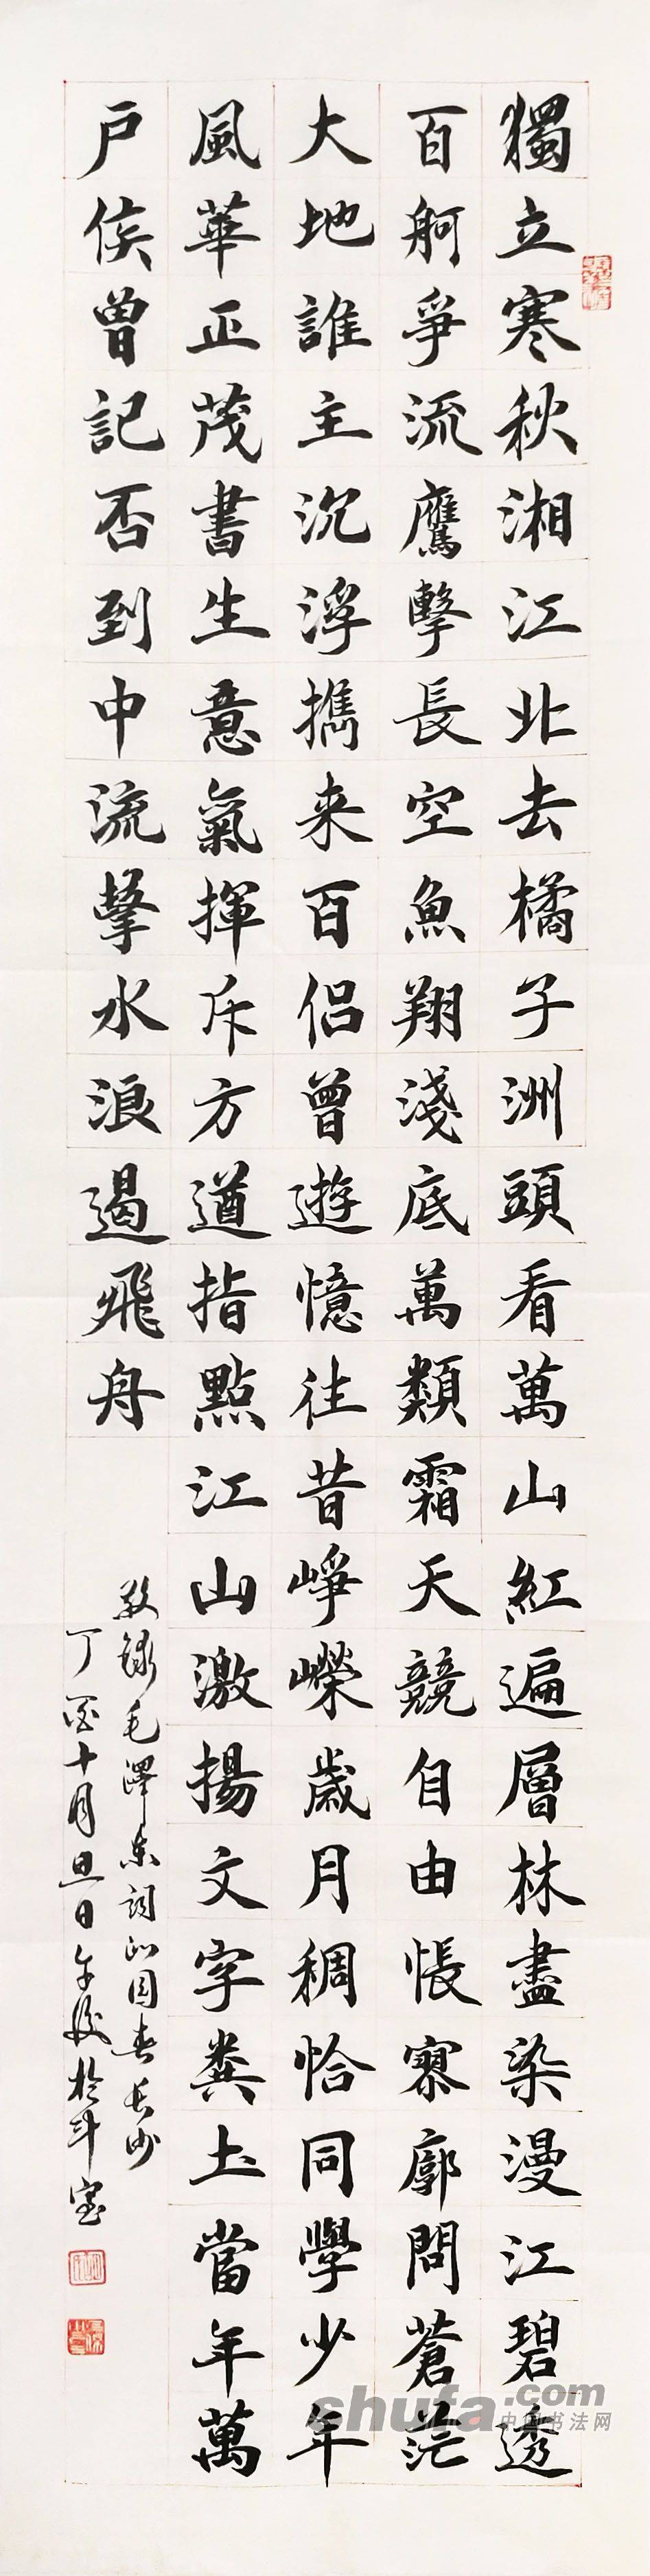 獨立寒秋湘江北去橘子洲頭看萬山紅遍層林盡染漫江碧透
百舸爭流鷹擊長空魚翔淺底萬類霜天競自由悵寥廓問蒼茫
大地誰主沉浮攜来百侣曾遊憶往昔崢嶸歲月稠恰同學少年
風華正茂書生意氣揮斥方遒指點江山激揚文字糞土當年萬
户侯曾記否到中流擊水浪遏飛舟
敬錄毛澤東詞沁園春長沙
丁酉十月旦日午後於斗室
shufa.com
中国书法网